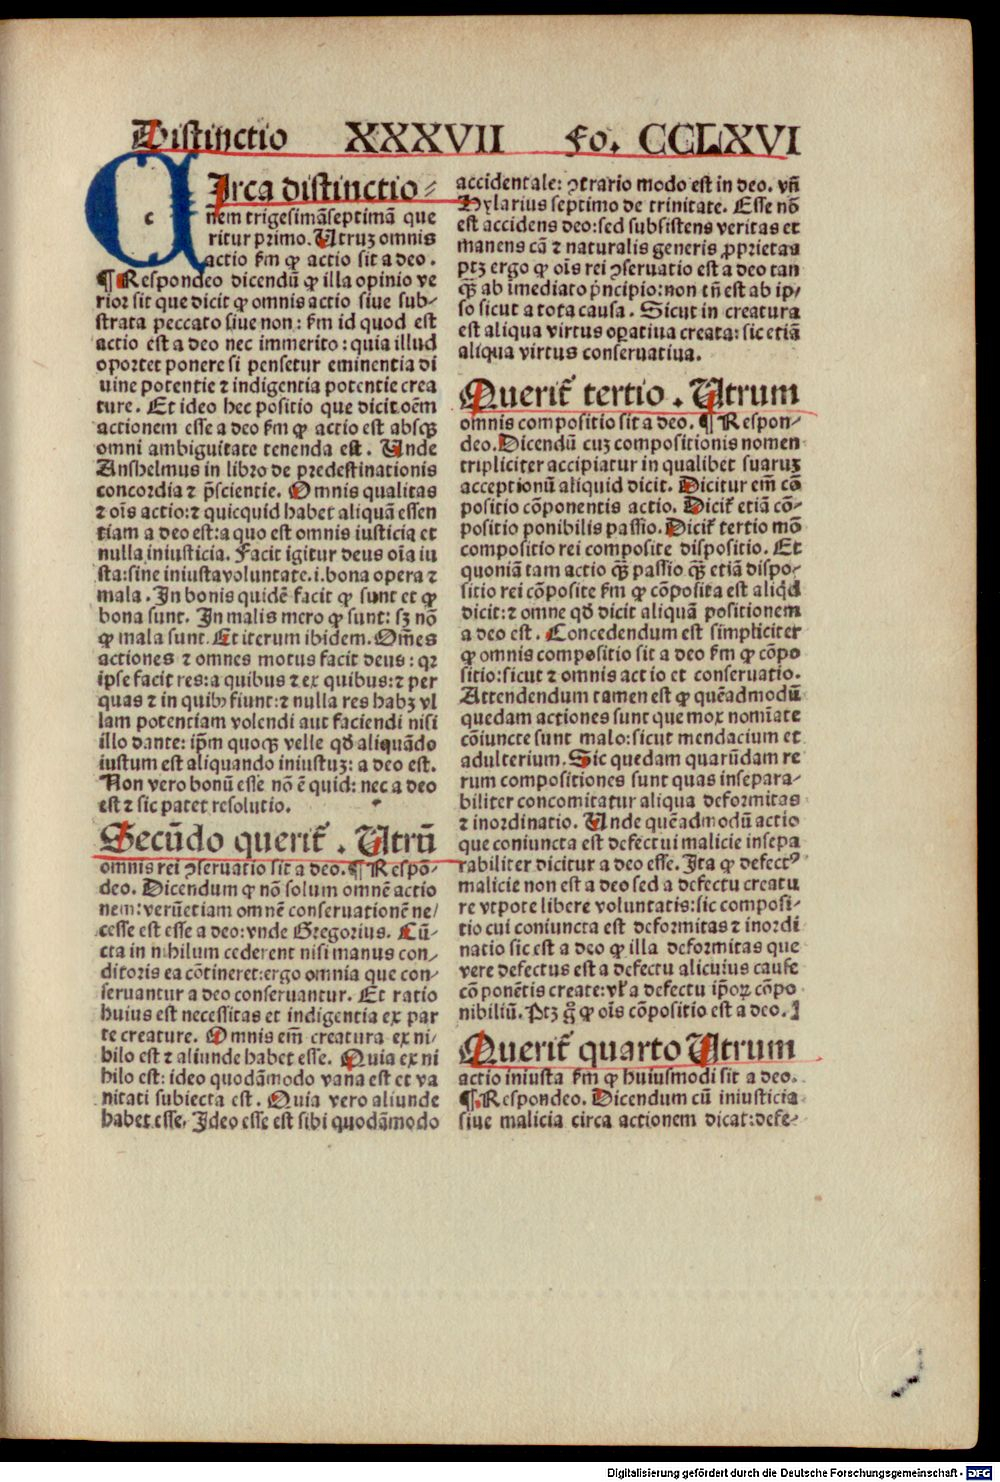 Distinctio XXXVII Fo. CCLXVI
CIrca distinctio⸗
nem trigesimāseptimā que
ritur primo. Utruꝫ omnis
actio ẜm ꝙ actio sit a deo.
¶ Respondeo dicendū ꝙ illa opinio ve
rior sit que dicit ꝙ omnis actio siue sub⸗
strata peccato siue non: ẜm id quod est
actio est a deo nec immerito: quia illud
oportet ponere si pensetur eminentia di
uine potentie ⁊ indigentia potentie crea
ture. Et ideo hec positio que dicit oēm
actionem esse a deo ẜm ꝙ actio est absqꝫ
omni ambiguitate tenenda est. Unde
Anshelmus in libro de predestinationis
concordia ⁊ p̄scientie. Omnis qualitas
⁊ oīs actio: ⁊ quicquid habet aliquā essen
tiam a deo est: a quo est omnis iusticia et
nulla iniusticia. Facit igitur deus oīa iu
sta: sine iniusta voluntate. i. bona opera ⁊
mala. In bonis quidē facit ꝙ sunt et ꝙ
bona sunt. In malis mero ꝙ sunt: sꝫ nō
ꝙ mala sunt. Et iterum ibidem. Om̄es
actiones ⁊ omnes motus facit deus: qꝛ
ipse facit res: a quibus ⁊ ex quibus: ⁊ per
quas ⁊ in quibꝰ fiunt: ⁊ nulla res habꝫ vl
lam potentiam volendi aut faciendi nisi
illo dante: ip̄m quoqꝫ velle qḋ aliquādo
iustum est aliquando iniustuꝫ: a deo est.
Non vero bonū esse nō ē quid: nec a deo
est ⁊ sic patet resolutio.
Secūdo querit̄. Utrū
omnis rei ꝯseruatio sit a deo. ¶ Respō⸗
deo. Dicendum ꝙ nō solum omnē actio
nem: verūetiam omnē conseruationē ne⸗
cesse est esse a deo: vnde Gregorius. Cū⸗
cta in nihilum cederent nisi manus con⸗
ditoris ea cōtineret: ergo omnia que con⸗
seruantur a deo conseruantur. Et ratio
huius est necessitas et indigentia ex par
te creature. Omnis em̄ creatura ex ni⸗
hilo est ⁊ aliunde habet esse. Quia ex ni
hilo est: ideo quodāmodo vana est et va
nitati subiecta est. Quia vero aliunde
habet esse. Ideo esse est sibi quodāmodo
accidentale: ꝯtrario modo est in deo. vn̄
Hylarius septimo de trinitate. Esse nō
est accidens deo: sed subsistens veritas et
manens cā ⁊ naturalis generis ꝓprietas
ptꝫ ergo ꝙ oīs rei ꝯseruatio est a deo tan
qꝫ̄ ab imediato p̄ncipio: non tn̄ est ab ip⸗
so sicut a tota causa. Sicut in creatura
est aliqua virtus oꝑatiua creata: sic etiā
aliqua virtus conseruatiua.
Querit̄ tertio. Utrum
omnis compositio sit a deo. ¶ Respon⸗
deo. Dicendū cuꝫ compositionis nomen
tripliciter accipiatur in qualibet suaruꝫ
acceptionū aliquid dicit. Dicitur em̄ cō
positio cōponentis actio. Dicit̄ etiā cō⸗
positio ponibilis passio. Dicit̄ tertio mō
compositio rei composite dispositio. Et
quoniā tam actio qꝫ̄ passio qꝫ̄ etiā dispo⸗
sitio rei cōposite ẜm ꝙ cōposita est aliqḋ
dicit: ⁊ omne qḋ dicit aliquā positionem
a deo est. Concedendum est simpliciter
ꝙ omnis compositio sit a deo ẜm ꝙ cōpo
sitio: sicut ⁊ omnis actio et conseruatio.
Attendendum tamen est ꝙ quēadmodū
quedam actiones sunt que mox nomīate
cōiuncte sunt malo: sicut mendacium et
adulterium. Sic quedam quarūdam re
rum compositiones sunt quas insepara⸗
biliter concomitatur aliqua deformitas
⁊ inordinatio. Unde quēadmodū actio
que coniuncta est defectui malicie insepa
rabiliter dicitur a deo esse. Ita ꝙ defectꝰ
malicie non est a deo sed a defectu creatu
re vtpote libere voluntatis: sic composi⸗
tio cui coniuncta est deformitas ⁊ inordi
natio sic est a deo ꝙ illa deformitas que
vere defectus est a defectu alicuius cause
cōponētis create: vł a defectu ip̄oꝝ cōpo
nibiliū. Ptꝫ g̊ ꝙ oīs cōpositio est a deo.
Querit̄ quarto Utrum
actio iniusta ẜm ꝙ huiusmodi sit a deo.
¶ Respondeo. Dicendum cū iniusticia
siue malicia circa actionem dicat: defe⸗
Digitalisierung gefördert durch die Deutsche Forschungsgemeinschaft - DFG